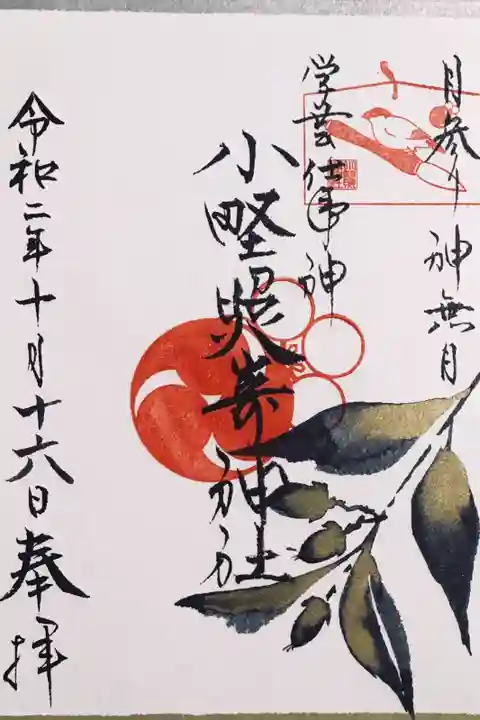 月参り 神無月
学芸仕事神
小野照崎神社
令和二年十月十六日奉拝